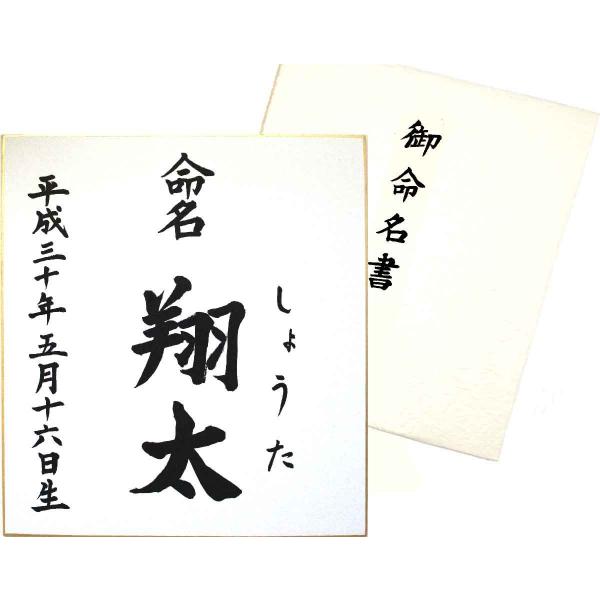 御命名書
命名
しょうた
翔太
平成三十年五月十六日生